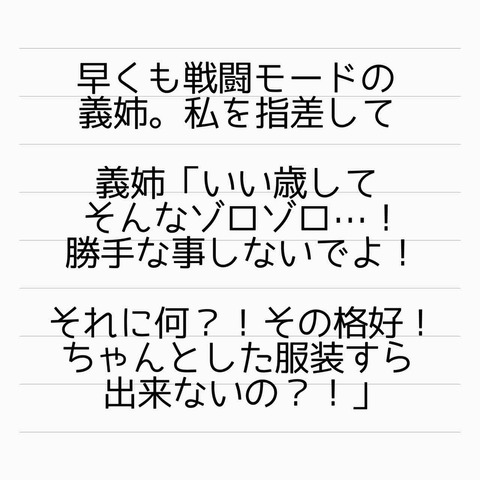 早くも戦闘モードの
義姉。私を指差して
義姉「いい歳して
そんなゾロゾロ…！
勝手な事しないでよ！
それに何？！その格好！
ちゃんとした服装すら
出来ないの？！」